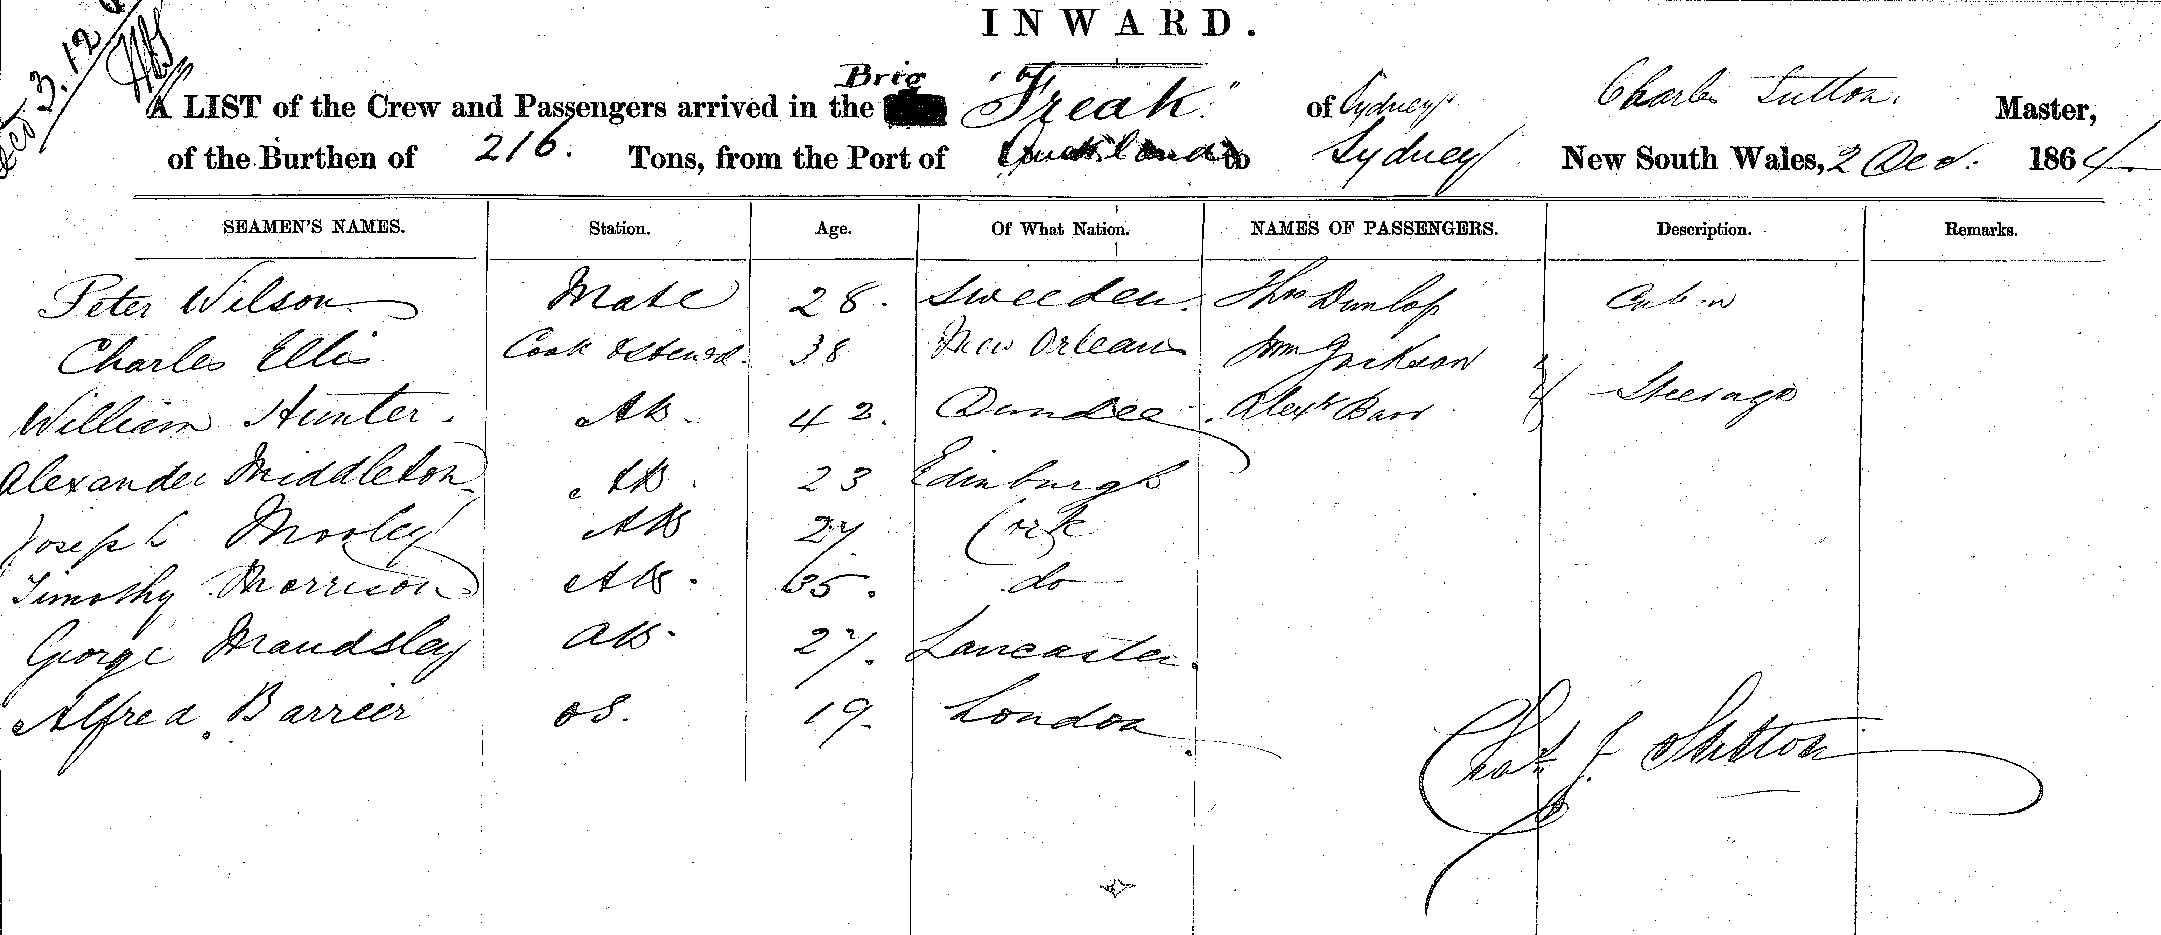 3.12
INWARD.
Brig
A LIST of the Crew and Passengers arrived in the "Freak" of Sydney Charles Sutton, Master,
of the Burthen of 216. Tons, from the Port of Auckland to Sydney New South Wales, 2 Dec. 1864
SEAMEN'S NAMES. Station. Age. Of What Nation. NAMES OF PASSENGERS. Description. Remarks.
Peter Wilson Mate 28. Sweeden. Thos Dunlop Cabin
Charles Ellis Cook & Steward. 38 New Orleans Wm Jackson
William Hunter. AB. 42. Dundee Alexr Barr Steerage
Alexander Middleton AB. 23 Edinburgh
Joseph Morley AB 27 Cork
Timothy Morrison AB. 35. do
George Maudsley AB. 27. Lancaster.
Alfred Barrier OS. 19. London
Chas J Sutton